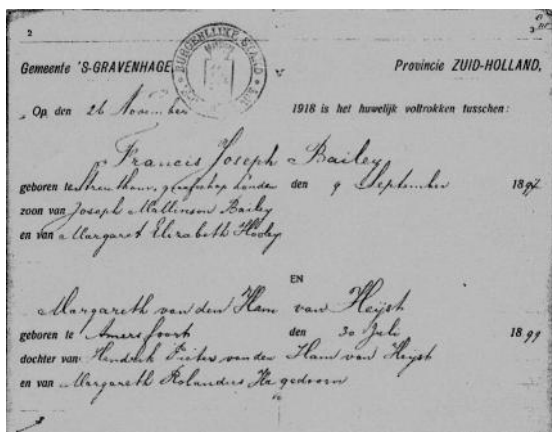 2
Gemeente 'S-GRAVENHAGE Provincie ZUID-HOLLAND,
BURGERLIJKE STAND
Op den 26 November 1918 is het huwelijk voltrokken tusschen:
Francis Joseph Bailey
geboren te graafschap Londen den 9 September 1897
zoon van Joseph Mallinson Bailey
en van Margaret Elizabeth Hooley
EN
Margareth van den Ham van Heijst
geboren te Amersfoort den 30 Juli 1899
dochter van Hendrik Pieter van den Ham van Heijst
en van Margareth Rolandus Hagedoorn